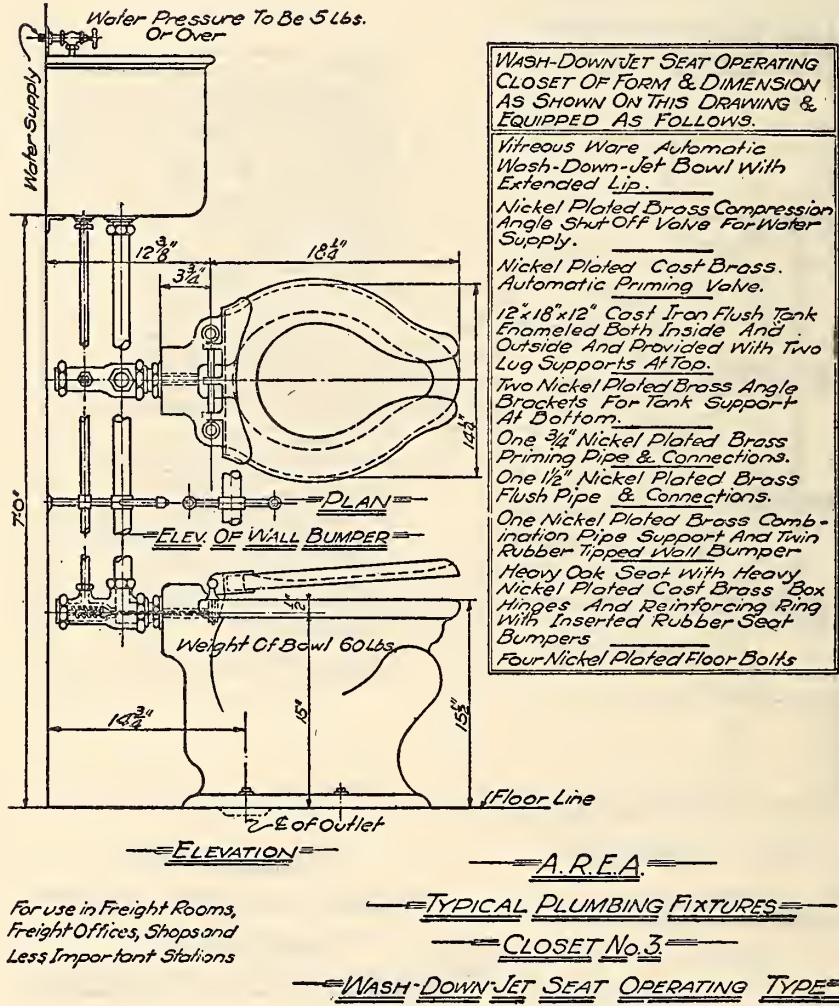 Water Pressure To Be 5 Lbs.
Or Over
Water Supply
12 3/8"
18 1/4"
3 3/4"
14 1/4"
7'0"
PLAN
ELEV. OF WALL BUMPER
1/2"
Weight Of Bowl 60 Lbs.
14 3/4"
15"
15 1/2"
Floor Line
℄ of Outlet
ELEVATION
WASH-DOWN JET SEAT OPERATING
CLOSET OF FORM & DIMENSION
AS SHOWN ON THIS DRAWING &
EQUIPPED AS FOLLOWS.
Vitreous Ware Automatic
Wash-Down-Jet Bowl With
Extended Lip.
Nickel Plated Brass Compression
Angle Shut Off Valve For Water
Supply.
Nickel Plated Cast Brass.
Automatic Priming Valve.
12"x18"x12" Cast Iron Flush Tank
Enameled Both Inside And
Outside And Provided With Two
Lug Supports At Top.
Two Nickel Plated Brass Angle
Brackets For Tank Support
At Bottom.
One 3/4" Nickel Plated Brass
Priming Pipe & Connections.
One 1 1/2" Nickel Plated Brass
Flush Pipe & Connections.
One Nickel Plated Brass Comb-
ination Pipe Support And Twin
Rubber Tipped Wall Bumper
Heavy Oak Seat With Heavy
Nickel Plated Cast Brass Box
Hinges And Reinforcing Ring
With Inserted Rubber Seat
Bumpers
Four Nickel Plated Floor Bolts
For use in Freight Rooms,
Freight Offices, Shops and
Less Important Stations
A.R.E.A.
TYPICAL PLUMBING FIXTURES
CLOSET No.3.
WASH-DOWN-JET SEAT OPERATING TYPE